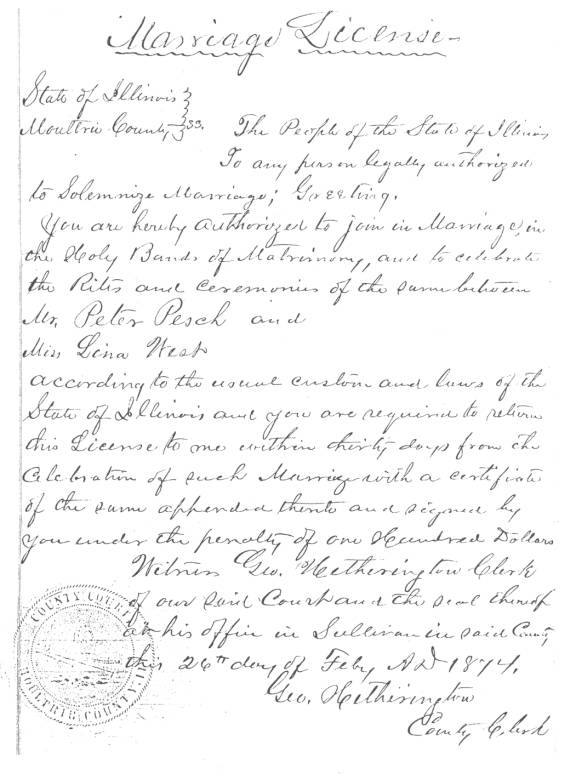 Marriage License
State of Illinois
Moultrie County } ss.
The People of the State of Illinois
To any person legally authorized
to Solemnize Marriage; Greeting.
You are hereby authorized to join in Marriage, in
the Holy Bands of Matrimony, and to celebrate
the Rites and Ceremonies of the same between
Mr. Peter Pesch and
Miss Lina West
according to the usual custom and laws of the
State of Illinois and you are required to return
this License to me within thirty days from the
Celebration of such Marriage with a certificate
of the same appended thereto and signed by
you under the penalty of one Hundred Dollars
Witness Geo. Hetherington Clerk
of our said Court and the seal thereof
at his office in Sullivan in said County
this 26th day of Feby A D 1874.
Geo. Hetherington
County Clerk
COUNTY COURT
MOULTRIE COUNTY